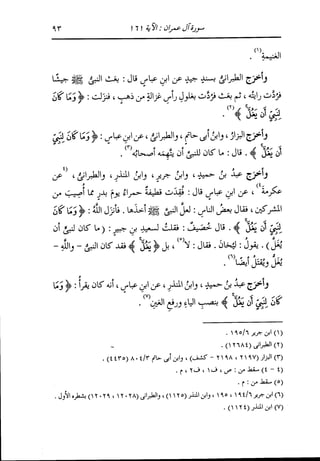 سورة آل عمران : الآية ١٦١
٩٣
الغنيمة(١).
وأخرج الطبرانى بسند جيد عن ابن عباس قال : بعث النبى ﷺ جيشًا
فردّت رايته ، ثم بعث فردّت بغلول رأس غزالة من ذهب ، فنزلت : ﴿ وما كان
لنبى أن يغل ﴾(٢).
وأخرج البزار ، وابن أبى حاتم ، والطبرانى ، عن ابن عباس : ﴿ وما كان لنبى
أن يغل ﴾ . قال : ما كان للنبى أن يتهمه أصحابه(٣).
وأخرج عبد بن حميد ، وابن جرير ، وابن المنذر ، والطبرانى ، (٤عن
عكرمة٤) ، عن ابن عباس قال : فقدت قطيفة حمراء يوم بدر مما أصيب من
المشركين ، فقال بعض الناس : لعل النبى ﷺ أخذها . فأنزل الله : ﴿ وما كان
لنبى أن يغل ﴾ . قال خصيف : فقلت لسعيد بن جبير : ( ما كان لنبى أن
يُغَل ) . يقول : ليخان . فقال : لا(٥) ، بل ﴿ يغل ﴾ فقد كان النبى - والله -
يغل ويقتل أيضًا(٦).
وأخرج عبد بن حميد ، وابن المنذر ، عن ابن عباس ، أنه كان يقرأ : ﴿ وما
كان لنبى أن يغل ﴾ بنصب الياء ورفع الغين(٧).
(١) ابن جرير ١٩٥/٦ .
(٢) الطبرانى (١٢٦٨٤) .
(٣) البزار (٢١٩٧ ، ٢١٩٨ - كشف) ، وابن أبى حاتم ٨٠٤/٣ (٤٤٣٥) .
(٤ - ٤) سقط من : ص ، ف١ ، ف٢ ، م .
(٥) سقط من : م .
(٦) ابن جرير ١٩٤/٦ ، ١٩٥ ، وابن المنذر (١١٢٥) ، والطبرانى (١٢٠٢٨ ، ١٢٠٢٩) بشطره الأول .
(٧) ابن المنذر (١١٢٤) .